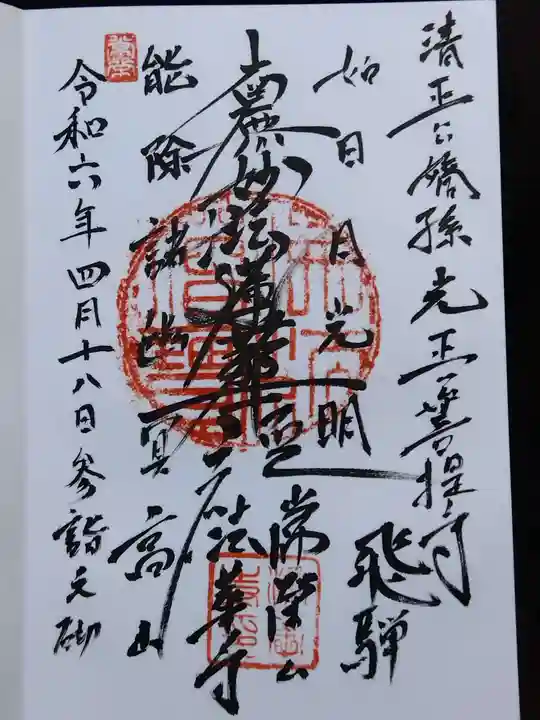 清正公嫡孫光正菩提寺
飛騨
如日月光明
常栄山
南無妙法蓮華経
法華寺
能除諸幽冥
高山
令和六年四月十八日参詣之砌